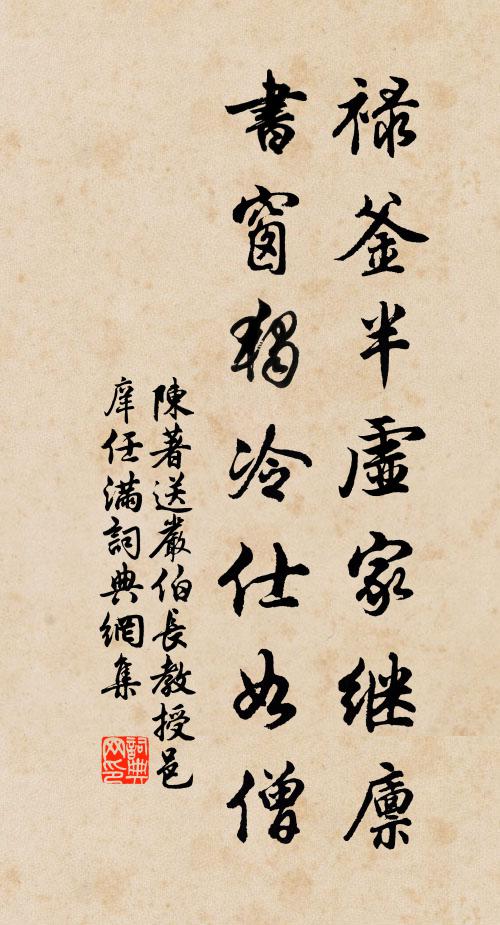 禄釜半虛家继廪
書窗獨冷仕如僧
陳著送嚴伯長教授邑
庠任滿詞典網集
詞典网印